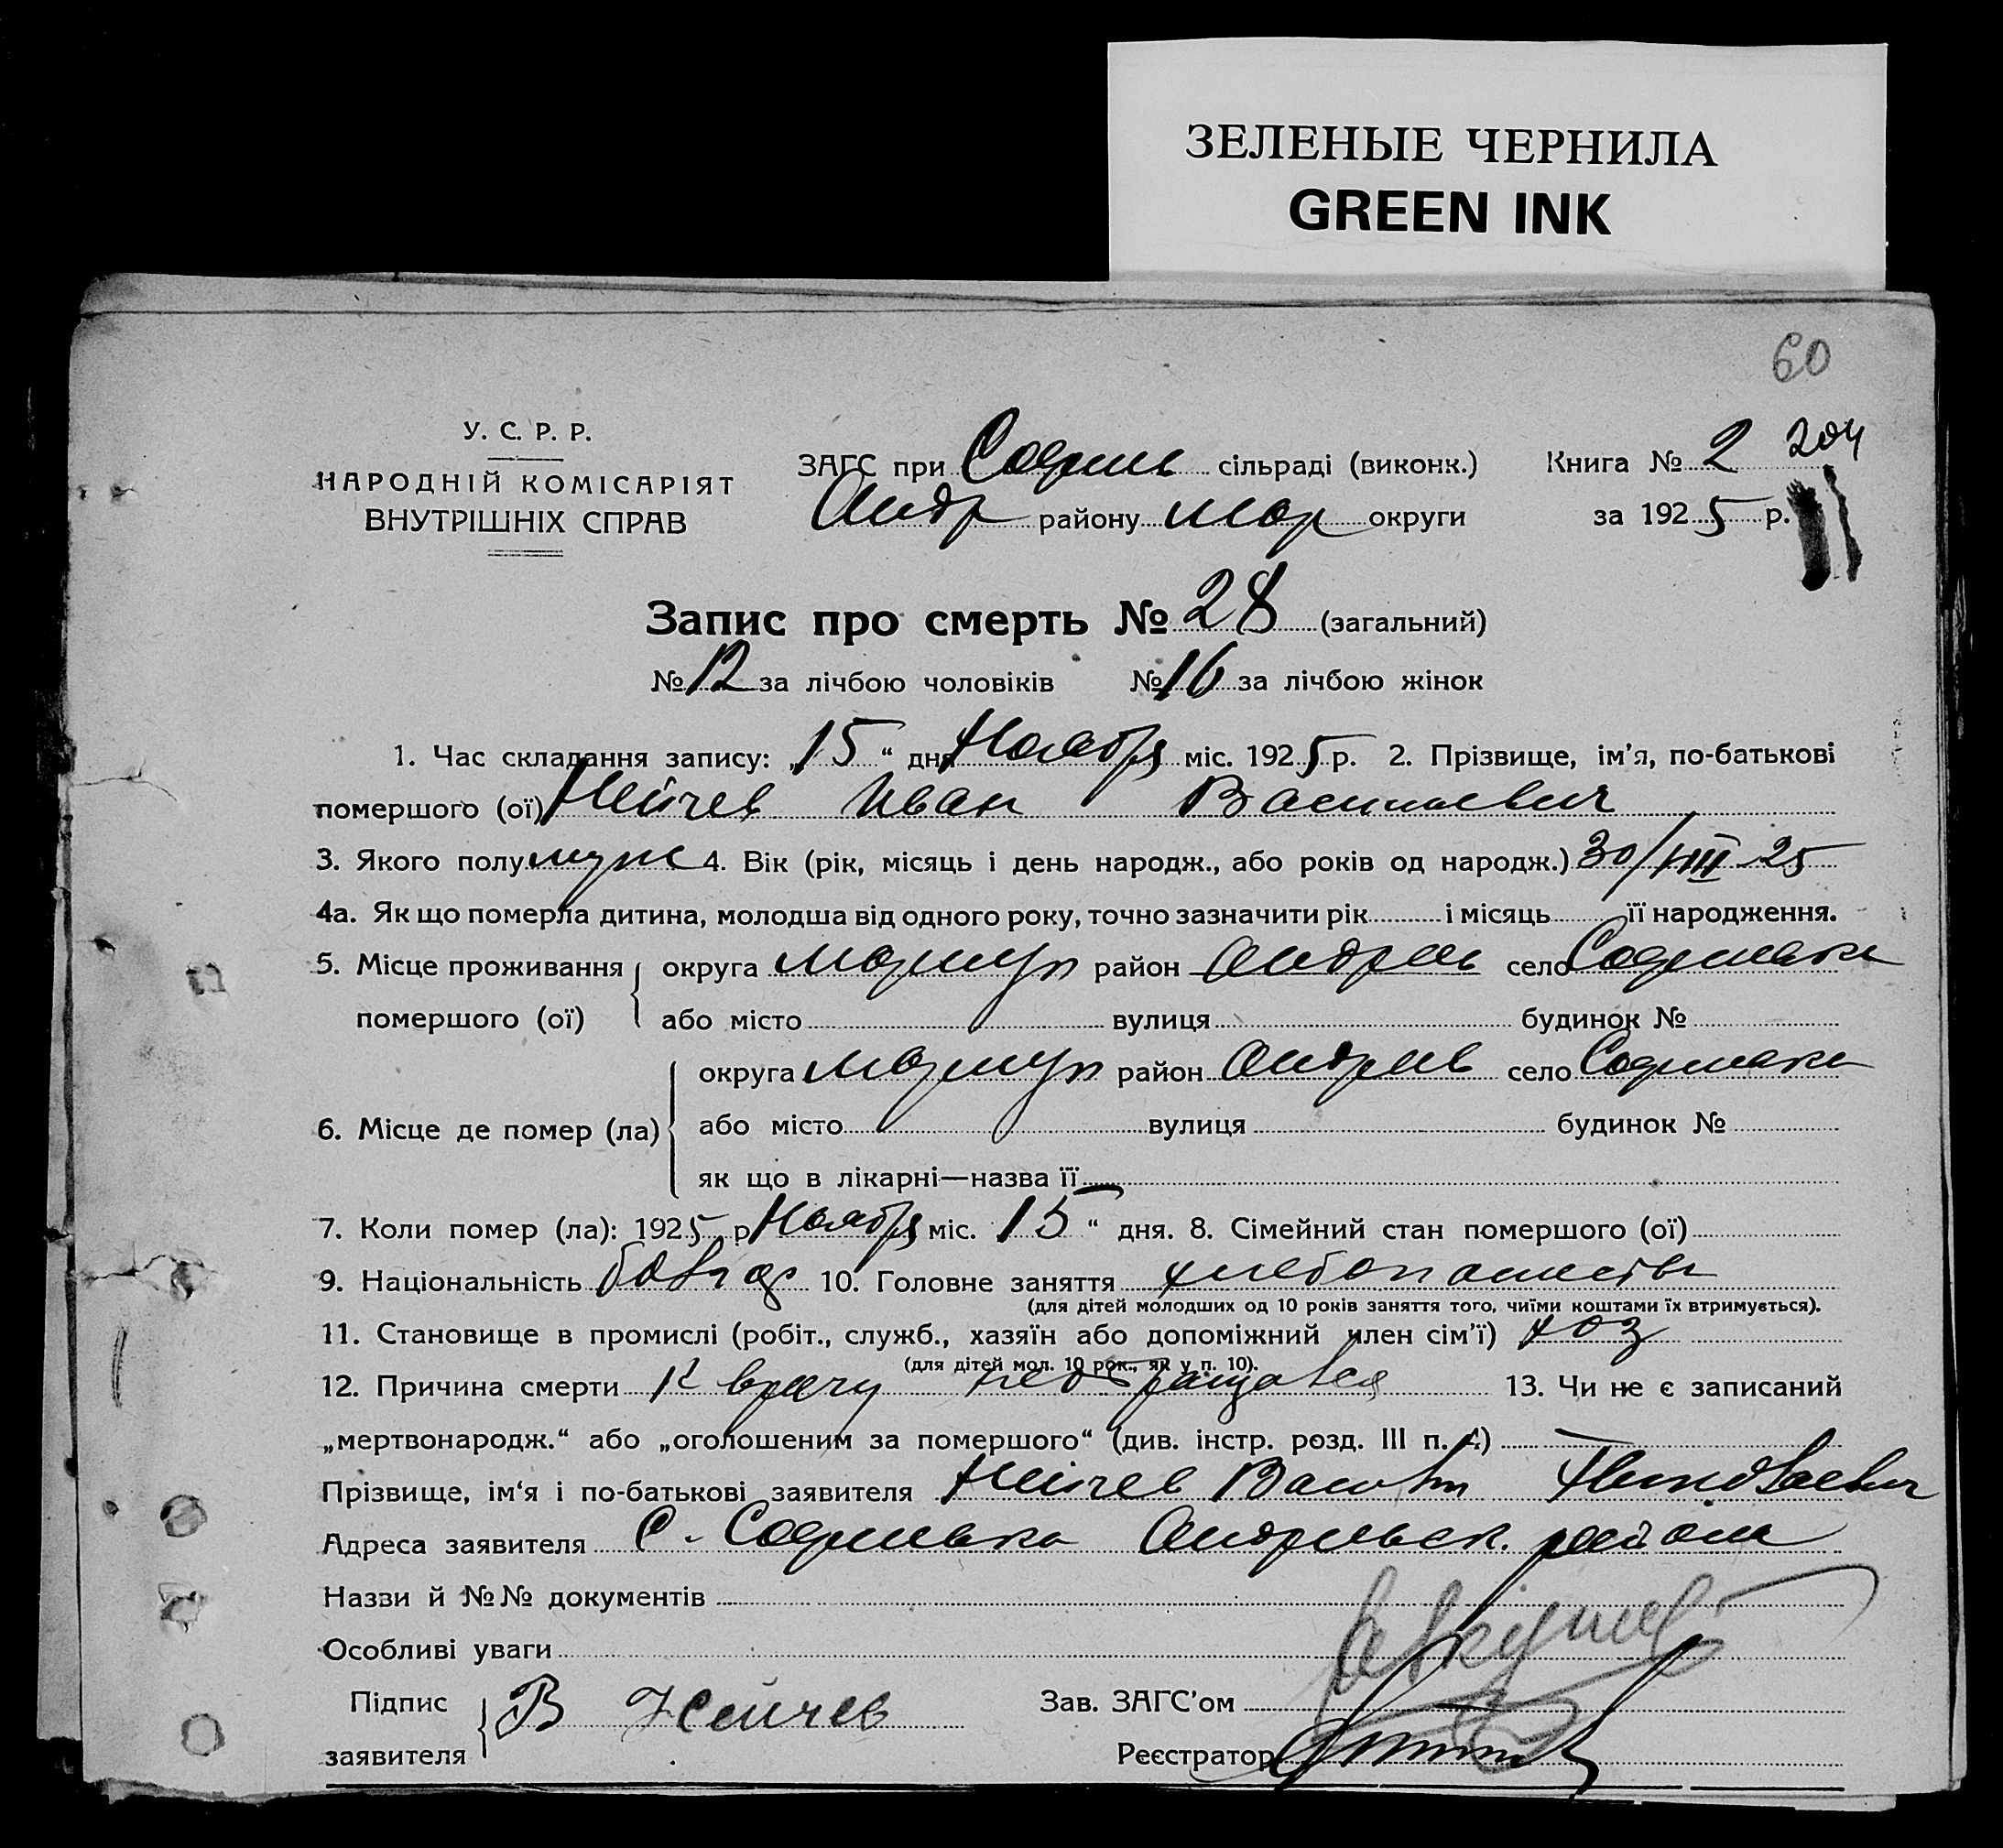 ЗЕЛЕНЫЕ ЧЕРНИЛА
GREEN INK
60
У. С. Р. Р.
НАРОДНІЙ КОМІСАРІЯТ
ВНУТРІШНІХ СПРАВ
ЗАГС при Софиев сільраді (виконк.) Книга № 2 204
Андр району Мар округи за 1925 р.
Запис про смерть № 28 (загальний)
№ 12 за лічбою чоловіків № 16 за лічбою жінок
1. Час складання запису: „15“ дня Ноября міс. 1925 р. 2. Прізвище, ім’я, по-батькові
помершого (ої) Нейчев Иван Васильевич
3. Якого полу муж 4. Вік (рік, місяць і день народж., або років од народж.) 30/VIII 25
4а. Як що померла дитина, молодша від одного року, точно зазначити рік і місяць її народження.
5. Місце проживання округа Мариуп район Андреев село Софиевка
помершого (ої) або місто вулиця будинок №
округа Мариуп район Андреев село Софиевка
6. Місце де помер (ла) або місто вулиця будинок №
як що в лікарні—назва її
7. Коли помер (ла): 1925 р Ноября міс. 15“ дня. 8. Сімейний стан помершого (ої)
9. Національність болгар 10. Головне заняття хлебопашество
(для дітей молодших од 10 років заняття того, чиїми коштами їх втримується).
11. Становище в промислі (робіт., служб., хазяїн або допоміжний член сім’ї) хоз
(для дітей мол. 10 рок., як у п. 10).
12. Причина смерти К врачу необращался 13. Чи не є записаний
„мертвонародж.“ або „оголошеним за помершого“ (див. інстр. розд. III п. 4)
Прізвище, ім‘я і по-батькові заявителя Нейчев Василий Николаевич
Адреса заявителя С. Софиевка Андреевск. района
Назви й №№ документів
Особливі уваги
Підпис
заявителя В Нейчев
Зав. ЗАГС’ом
Реєстратор